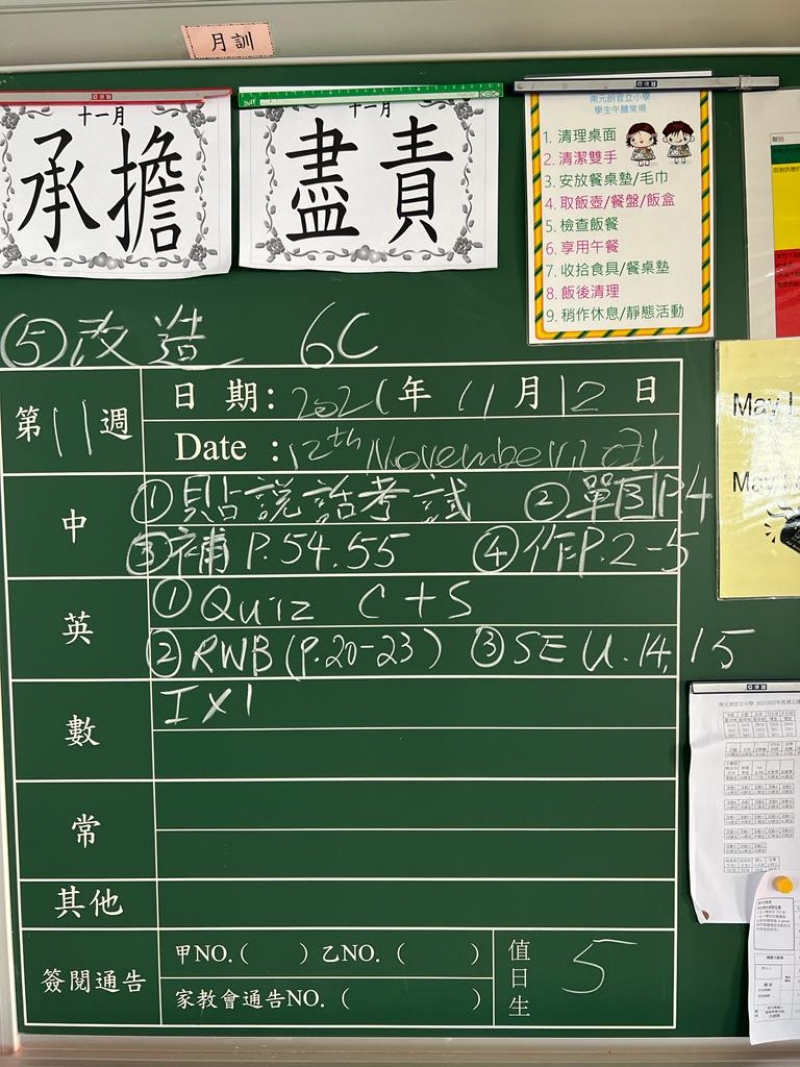 月訓
十一月
承擔
十一月
盡責
南元朗官立小學
學生午膳常規
1. 清理桌面
2. 清潔雙手
3. 安放餐桌墊/毛巾
4. 取飯壺/餐盤/飯盒
5. 檢查飯餐
6. 享用午餐
7. 收拾食具/餐桌墊
8. 飯後清理
9. 稍作休息/靜態活動
⑤改造 6C
第11週
日 期: 2021年 11月12日
Date : 12th November, 2021
中
①貼說話考試 ②單图P.4
③補P.54.55 ④作P.2-5
英
①Quiz C+S
②RWB(P.20-23) ③SE U.14,15
數
I×1
常
其他
簽閱通告
甲NO.( ) 乙NO. ( )
家教會通告NO. ( )
值日生
5
May I
May I